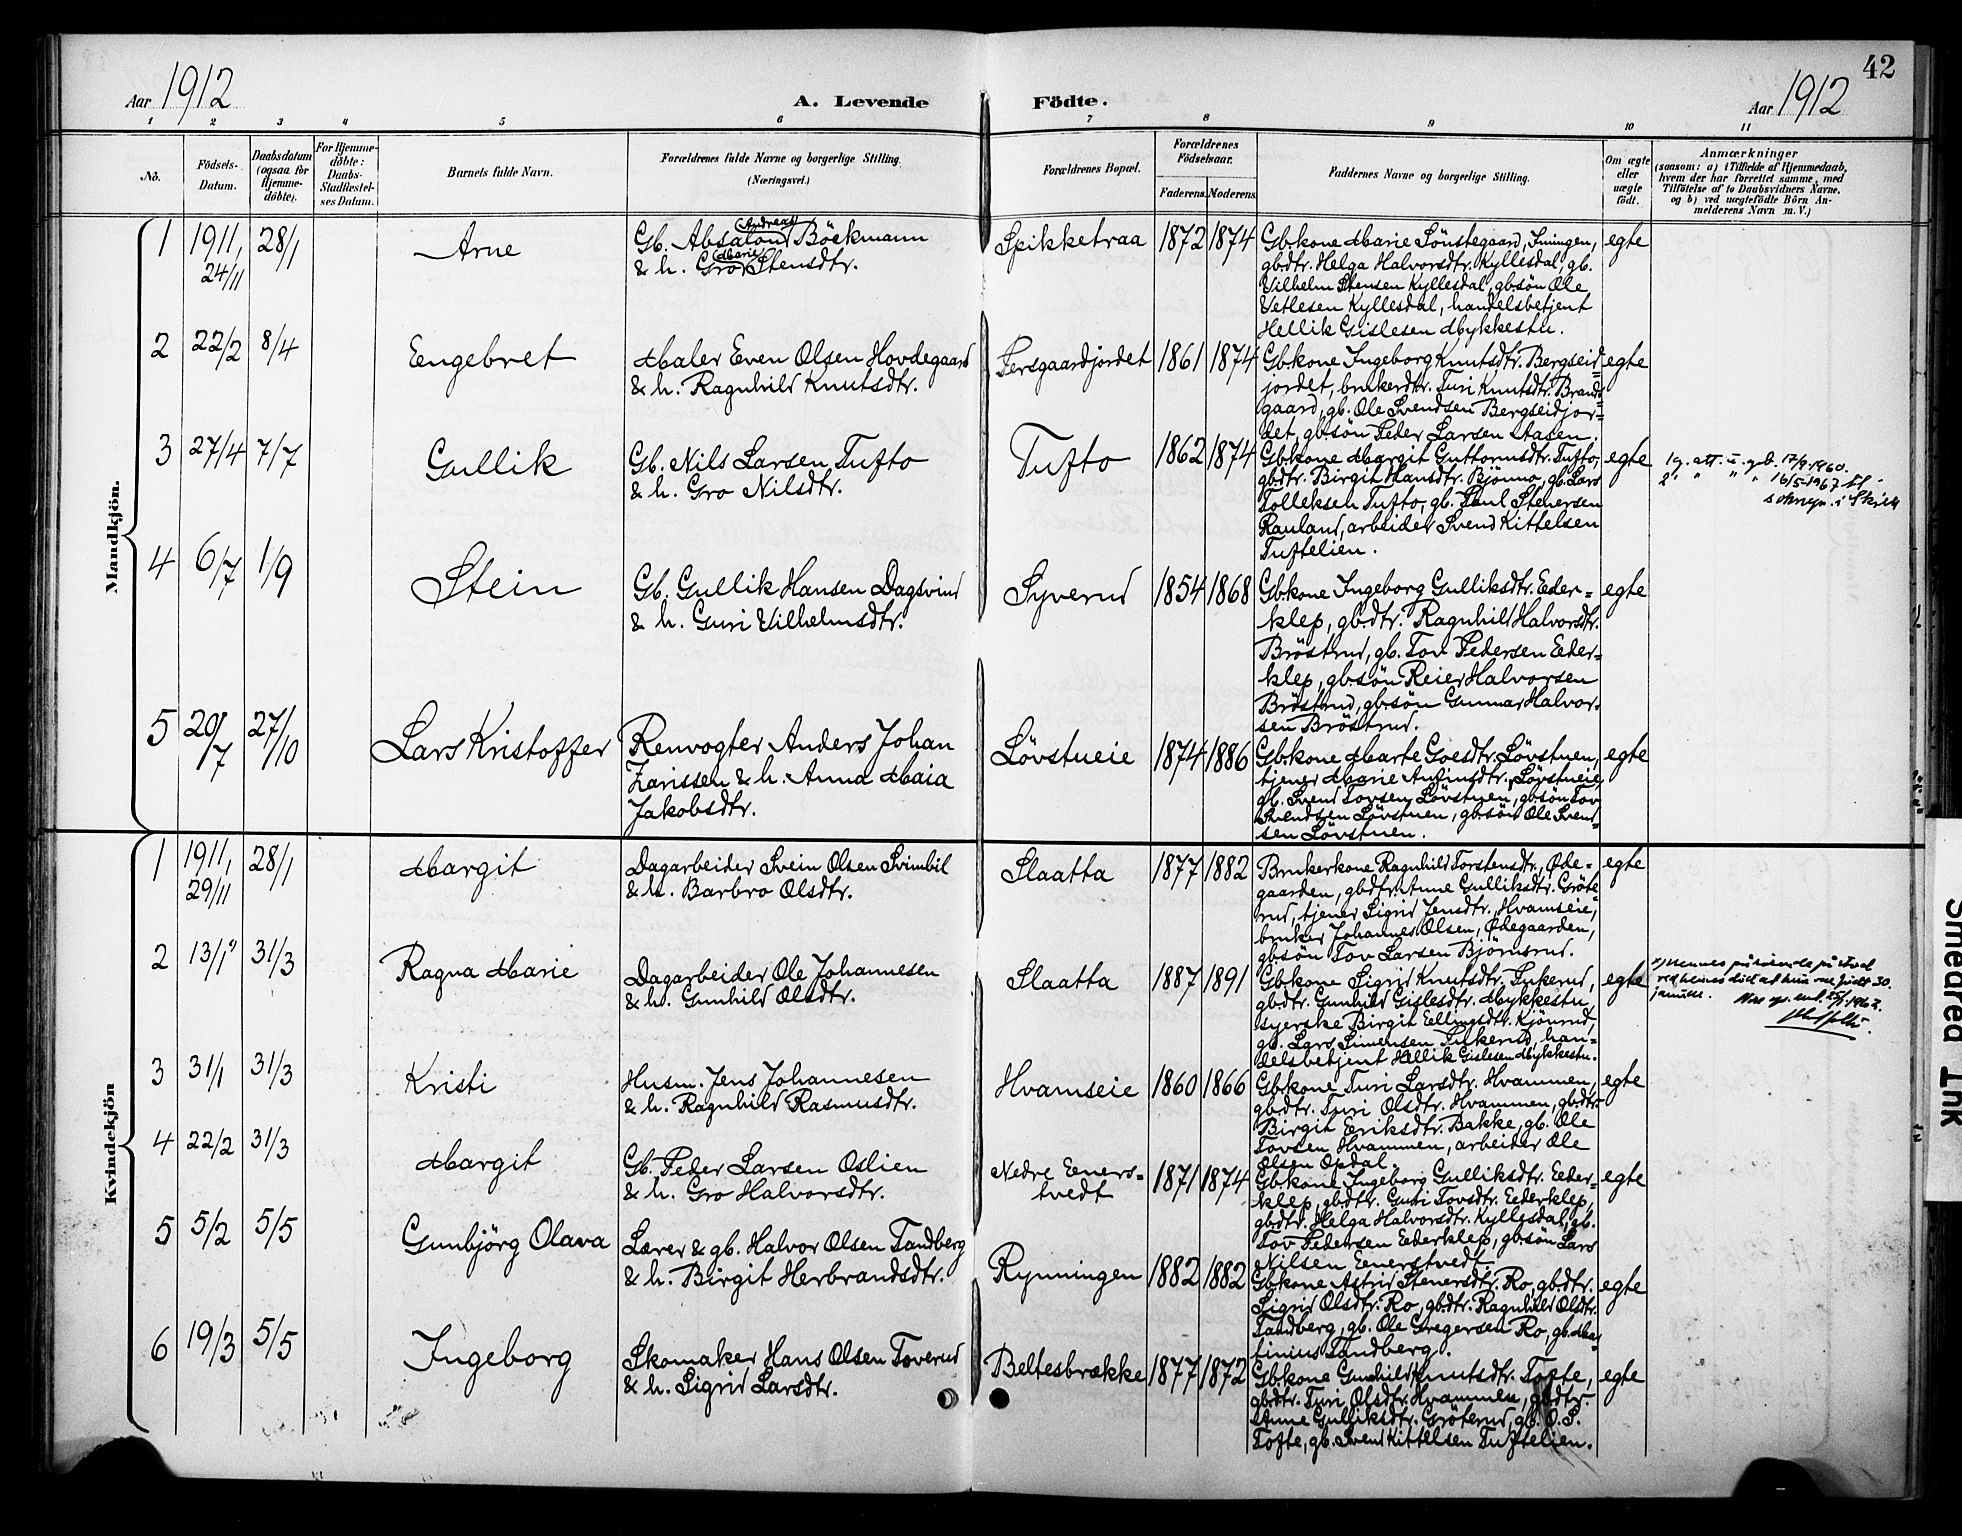 42
Aar 1912
A. Levende Födte.
Aar 1912
1 2 3 4 5 6 7 8 9 10 11
No.
Födsels-Datum.
Daabsdatum (ogsaa for Hjemme-döbte).
For Hjemme-döbte: Daabs-Stadfæstel-ses Datum.
Barnets fulde Navn.
Forældrenes fulde Navne og borgerlige Stilling. (Næringsvei.)
Forældrenes Bopæl.
Forældrenes Födselsaar.
Faderens. Moderens.
Faddernes Navne og borgerlige Stilling.
Om ægte eller uægte födt.
Anmærkninger
(saasom: a) i Tilfælde af Hjemmedaab,
hvem der har forrettet samme, med
Tilföielse af to Daabsvidners Navne,
og b) ved uægtefödte Börn An-
melderens Navn m. V.)
Mandkjön.
1 1911, 24/11 28/1 Arne
Andreas
Gb. Absalon Böckmann
Marie
& h. Gro Stensdtr.
Spikketraa 1872 1874
Gb.kone Marie Sönstegaard, Iningen,
gb.dtr. Helga Halvorsdtr. Kyllesdal, gb.
Vilhelm Stensen Kyllesdal, gb.sön Ole
Vetlesen Kyllesdal, handelsbetjent
Hellik Gislesen Mykkestu.
egte
2 22/2 8/4 Eengebret
Maler Even Olsen Hovdegaard
& h. Ragnhild Knutsdtr.
Persgaardjordet 1861 1874
Gb.kone Ingeborg Knutsdtr. Bergseid=
jordet, brukerdtr. Turi Knutsdtr. Brand=
gaard, gb. Ole Svendsen Bergseidjor=
det, gb.sön Peder Larsen Aasen.
egte
3 27/4 7/7 Gullik
Gb. Nils Larsen Tufto
& h. Gro Nilsdtr.
Tufto 1862 1874
Gb.kone Margit Guttormsdtr. Tufto,
gb.dtr. Birgit Hansdtr. Bjönno, gb. Lars
Tolleksen Tufto, gb. Paul Stenersen
Rauland, arbeider Svend Kittelsen
Tuftelien.
egte
1 g. att. u. geb. 17/9 1960.
2 " " " " 16/5-1967 til
soknepr. i Skien
4 6/7 1/9 Stein
Gb. Gullik Hansen Dagsvind
& h. Guri Vilhelmsdtr.
Syverud 1854 1868
Gb.kone Ingeborg Gulliksdtr. Eeder=
klep, gb.dtr. Ragnhild Halvorsdtr.
Bröstrud, gb. Tov Pedersen Eeder=
klep, gb.sön Reier Halvorsen
Bröstrud, gb.sön Gunnar Halvor=
sen Bröstrud.
egte
5 20/7 27/10 Lars Kristoffer
Renvogter Anders Johan
Zarissen & h. Anna Maia
Jakobsdtr.
Lövstueie 1874 1886
Gb.kone Marte Goesdtr. Lövstuen,
tjener Marie Anfinsdtr. Lövstueie,
gb. Svend Tovsen Lövstuen, gb.sön Tov
Svendsen Lövstuen, gb.sön Ole Svend=
sen Lövstuen.
egte
Kvindekjön
1 1911, 29/11 28/1 Margit
Dagarbeider Svein Olsen Svimbil
& h. Barbro Olsdtr.
Slaatta 1877 1882
Brukerkone Ragnhild Torstensdtr, Öde=
gaarden, gb.dtr. Anne Gulliksdtr. Gröte
rud, tjener Sigrid Jensdtr. Hvamseie,
bruker Johannes Olsen, Ödegaarden,
gb.sön Tov Larsen Björnsrud.
egte
2 13/1 31/3 Ragna Marie
Dagarbeider Ole Johannesen
& h. Gunhild Olsdtr.
Slaatta 1887 1891
Gb.kone Sigrid Knutsdtr. Finkerud,
gb.dtr. Gunhild Gislesdtr. Mykkestu
syerske Birgit Eellingsdtr. Kjönrud,
gb. Lars Simensen Finkerud, han=
delsbetjent Hellik Gislesen Mykkestu.
egte
ved hennes dåd at hun var født 30.
januar.
3 31/1 31/3 Kristi
Husm. Jens Johannesen
& h. Ragnhild Rasmusdtr.
Hvamseie 1860 1866
Gb.kone Turi Larsdtr. Hvammen,
gb.dtr. Turi Olsdtr. Hvammen, gb.dtr.
Birgit Eeriksdtr. Bakke, gb. Ole
Tovsen Hvammen, arbeider Ole
Olsen Opdal.
egte
4 22/2 31/3 Margit
Gb. Peder Larsen Oslien
& h. Gro Halvorsdtr.
Nedre Eeners=
tvedt 1871 1874
Gb.kone Ingeborg Gulliksdtr. Eeder=
klep, gb.dtr. Guri Tovsdtr. Eederklep,
gb.dtr. Helga Halvorsdtr. Kyllesdal, gb.
Tov Pedersen Eederklep, gb.sön Lars
Nilsen Eenerstvedt.
egte
5 5/2 5/5 Gunbjörg Olava
Lærer & gb. Halvor Olsen Tandberg
& h. Birgit Herbrandsdtr.
Rynningen 1882 1882
Gb.kone Astrid Stenersdtr. Ro, gb.dtr.
Sigrid Olsdtr. Ro, gb.dtr. Ragnhild Olsdtr.
Tandberg, gb. Ole Gregersen Ro, gb. Mar
tinius Tandberg.
egte
6 19/3 5/5 Ingeborg
Skomaker Hans Olsen Toverud
& h. Sigrid Larsdtr.
Beltesbrække 1877 1872
Gb.kone Gunhild Knutsdtr. Tofte,
gb.dtr. Turi Olsdtr. Hvammen, gb.dtr.
Anne Gulliksdtr. Gröterud, gb. O. S.
Tofte, gb. Svend Kittelsen Tuftelien.
egte
Smeared Ink